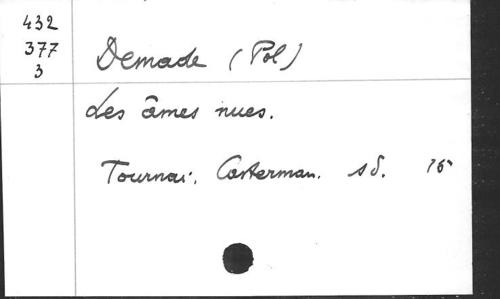 432
377
3
Demade (Pol)
Les âmes nues.
Tournai, Casterman. sd.